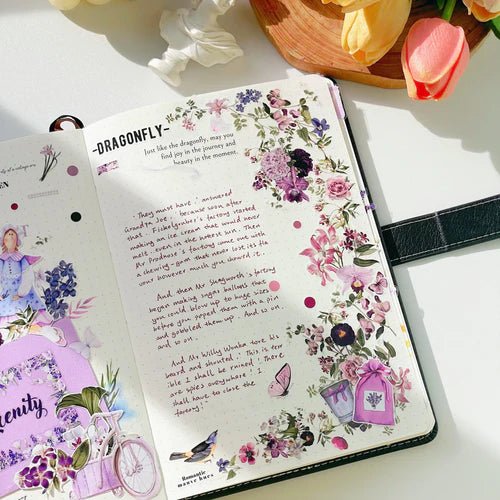 EN
erenity
-DRAGONFLY-
Just like the dragonfly, may you
find joy in the journey and
beauty in the moment.
'They must have,' answered
Grandpa Joe, 'because soon after
that, Fickelgruber's factory started
making an ice cream that would never
melt, even in the hottest sun. Then
Mr Prodnose's factory came out with
a chewing-gum that never lost its fla
vour however much you chewed it.
And then Mr Slugworth's factory
began making sugar balloons that
you could blow up to huge sizes
before you popped them with a pin
and gobbled them up. And so on,
and so on.
And Mr Willy Wonka tore his
beard and shouted: "This is terr
ible! I shall be ruined! There
are spies everywhere! I
shall have to close the
factory."
Romantic
manor hues